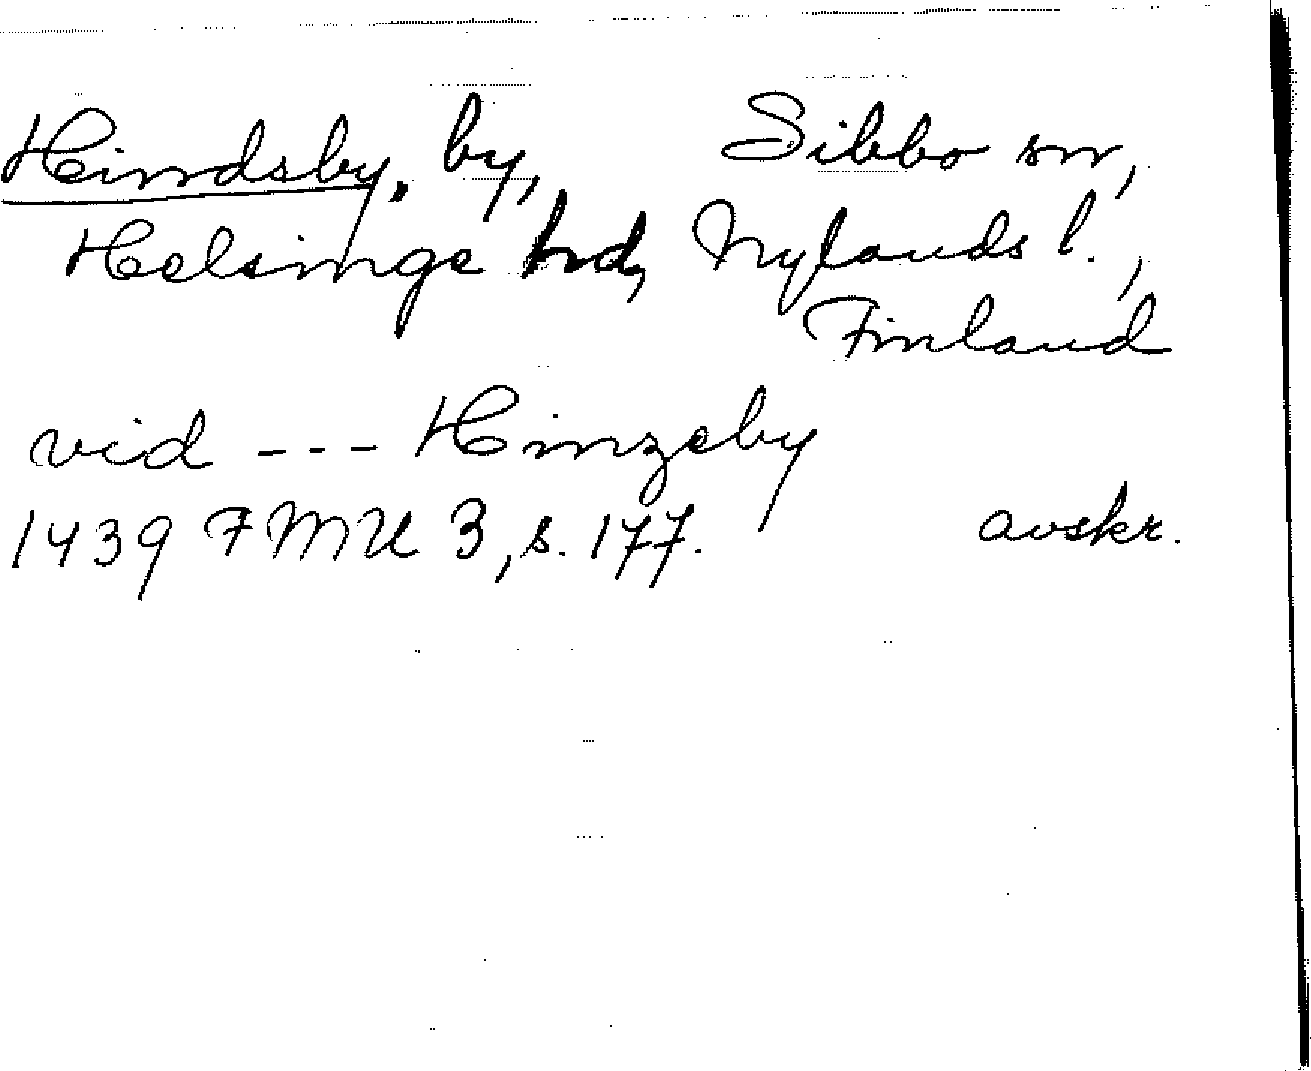 Hindsby, by, Sibbo sn,
Helsinge hd, Nylands l.,
Finland
vid --- Hinzeby
1439 FMU 3, s. 177. avskr.